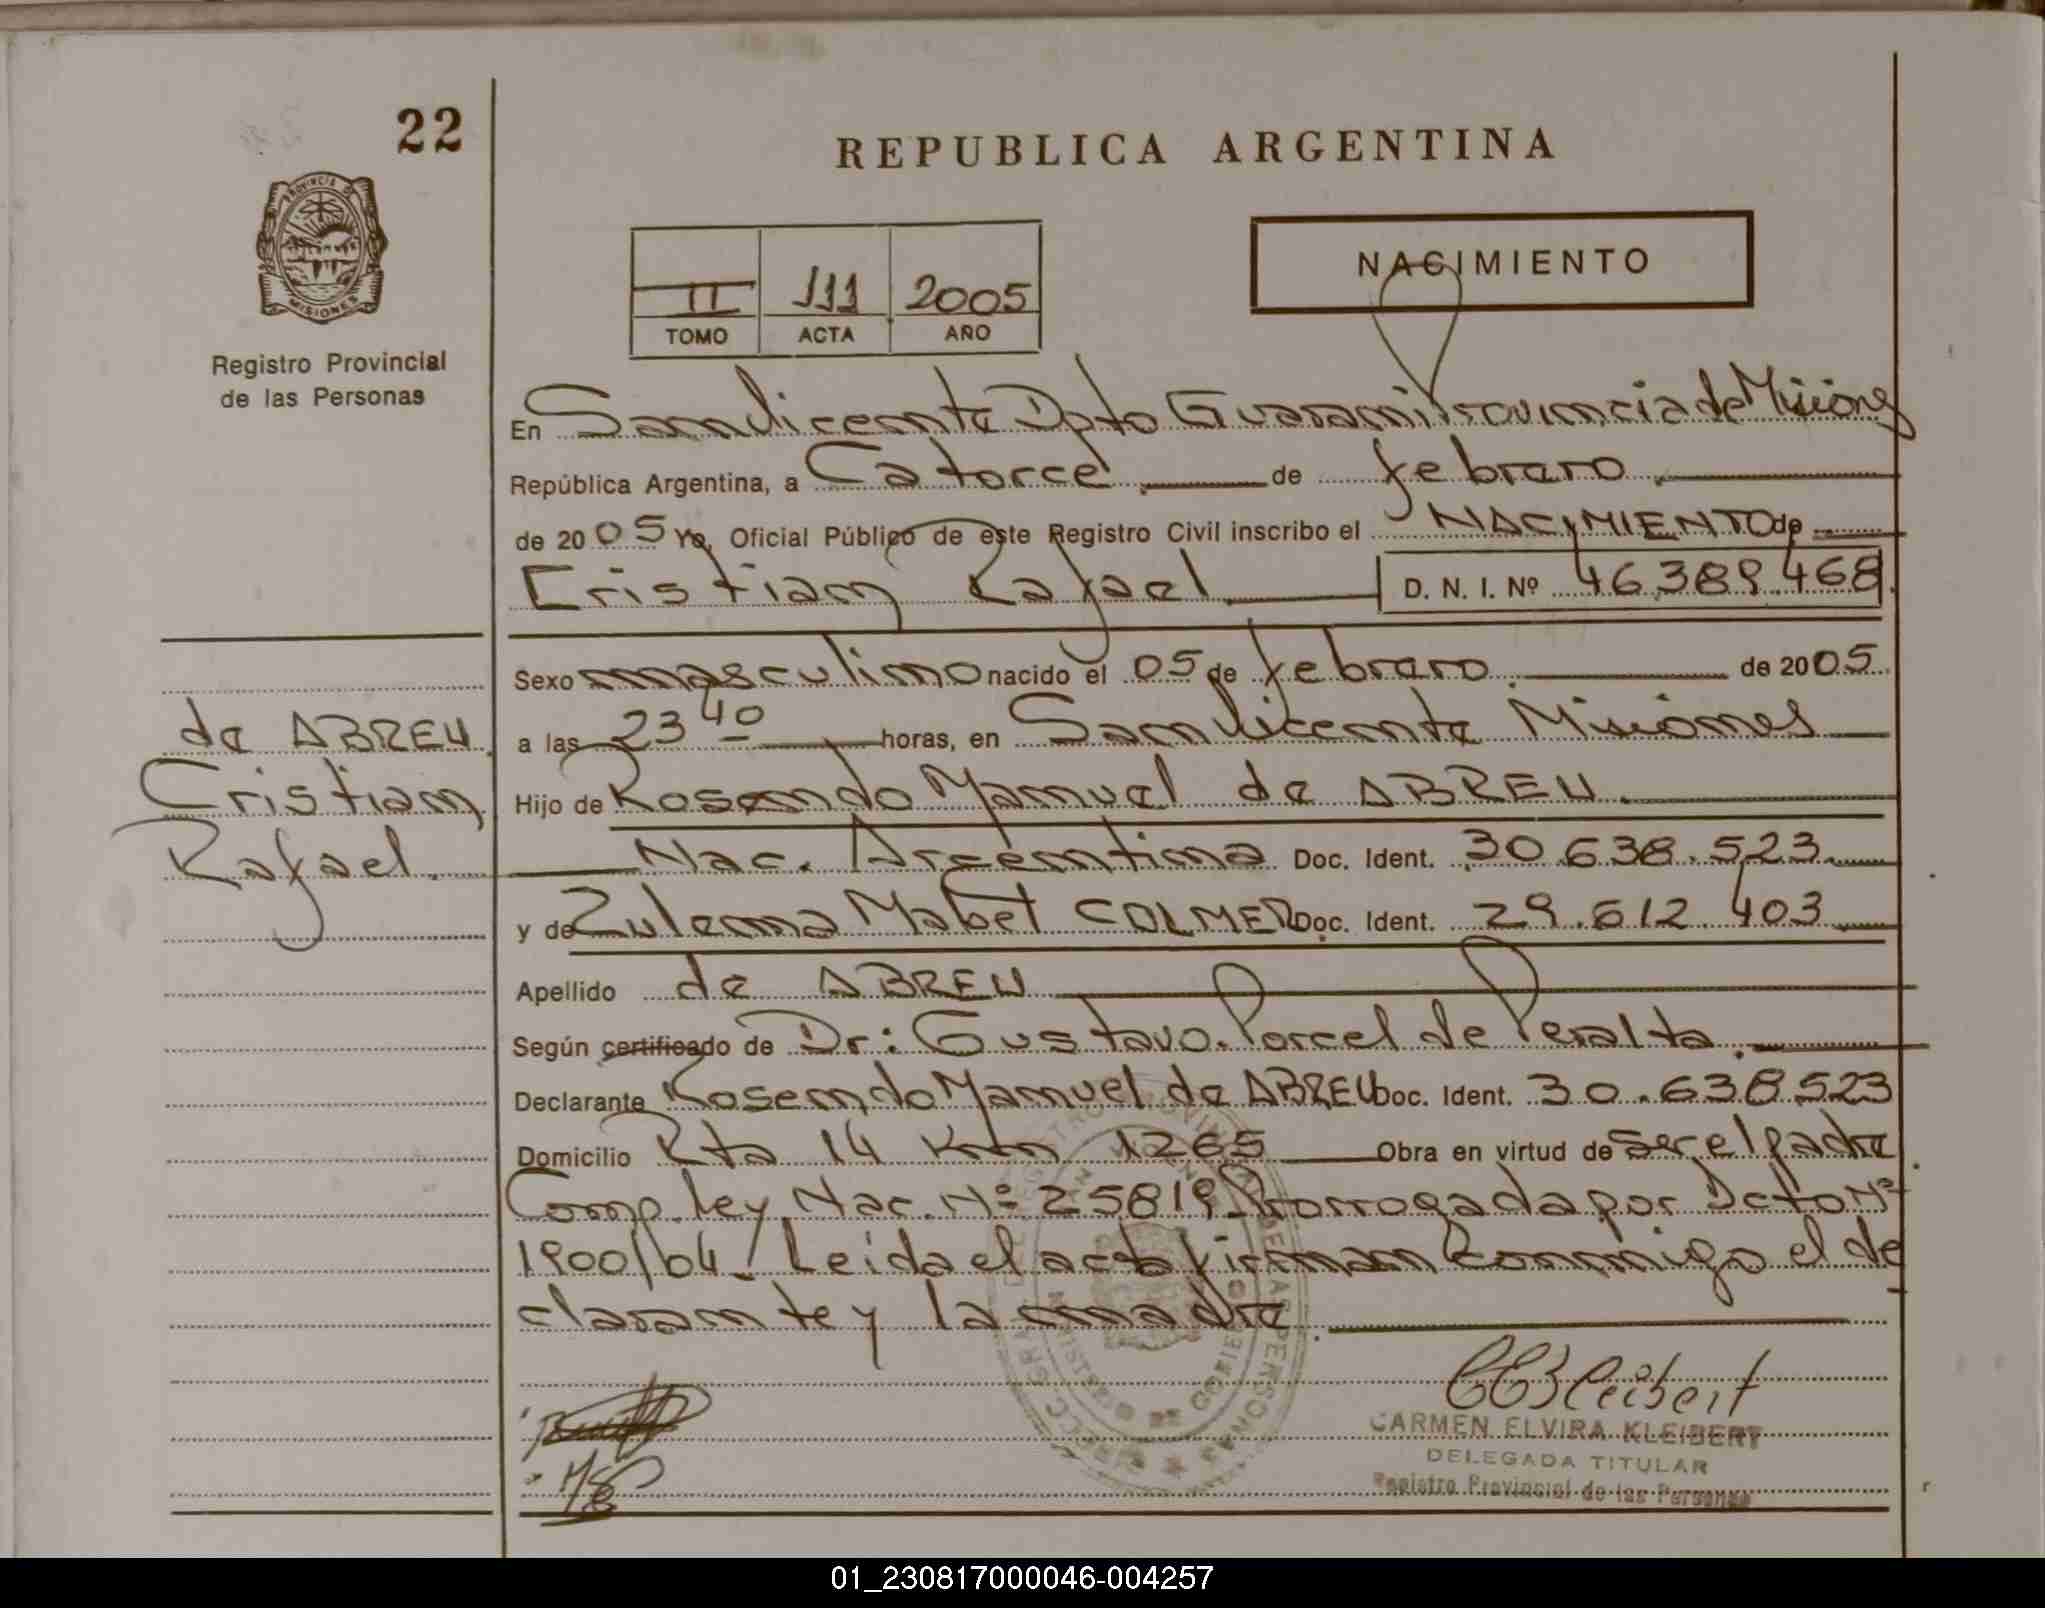 22
REPUBLICA ARGENTINA
PROVINCIA DE
MISIONES
NACIMIENTO
II 111 2005
TOMO ACTA AÑO
Registro Provincial
de las Personas
En San Vicente Dpto Guarani Provincia de Misiones
República Argentina, a Catorce de febrero
de 2005 Yo, Oficial Público de este Registro Civil inscribo el NACIMIENTO de
Cristian Rafael D. N. I. Nº 46.389.468
Sexo masculino nacido el 05 de febrero de 2005
de ABREU
Cristian
Rafael.
a las 23 40 horas, en San Vicente Misiones
Hijo de Rosendo Manuel de ABREU
Nac. Argentina Doc. Ident. 30.638.523
y de Zulema Mabel COLMER Doc. Ident. 29.612.403
Apellido de ABREU
Según certificado de Dr: Gustavo Porcel de Peralta
Declarante Rosendo Manuel de ABREU Doc. Ident. 30.638.523
Domicilio Rta 14 Km 1265 Obra en virtud de ser el padre
Comp. ley Nac. Nº 25819 Prorrogada por Dcto Nº
1900/04. Leida el acta firman conmigo el de
clarante y la madre
CARMEN ELVIRA KLEIBERT
DELEGADA TITULAR
Registro Provincial de las Personas
01_230817000046-004257